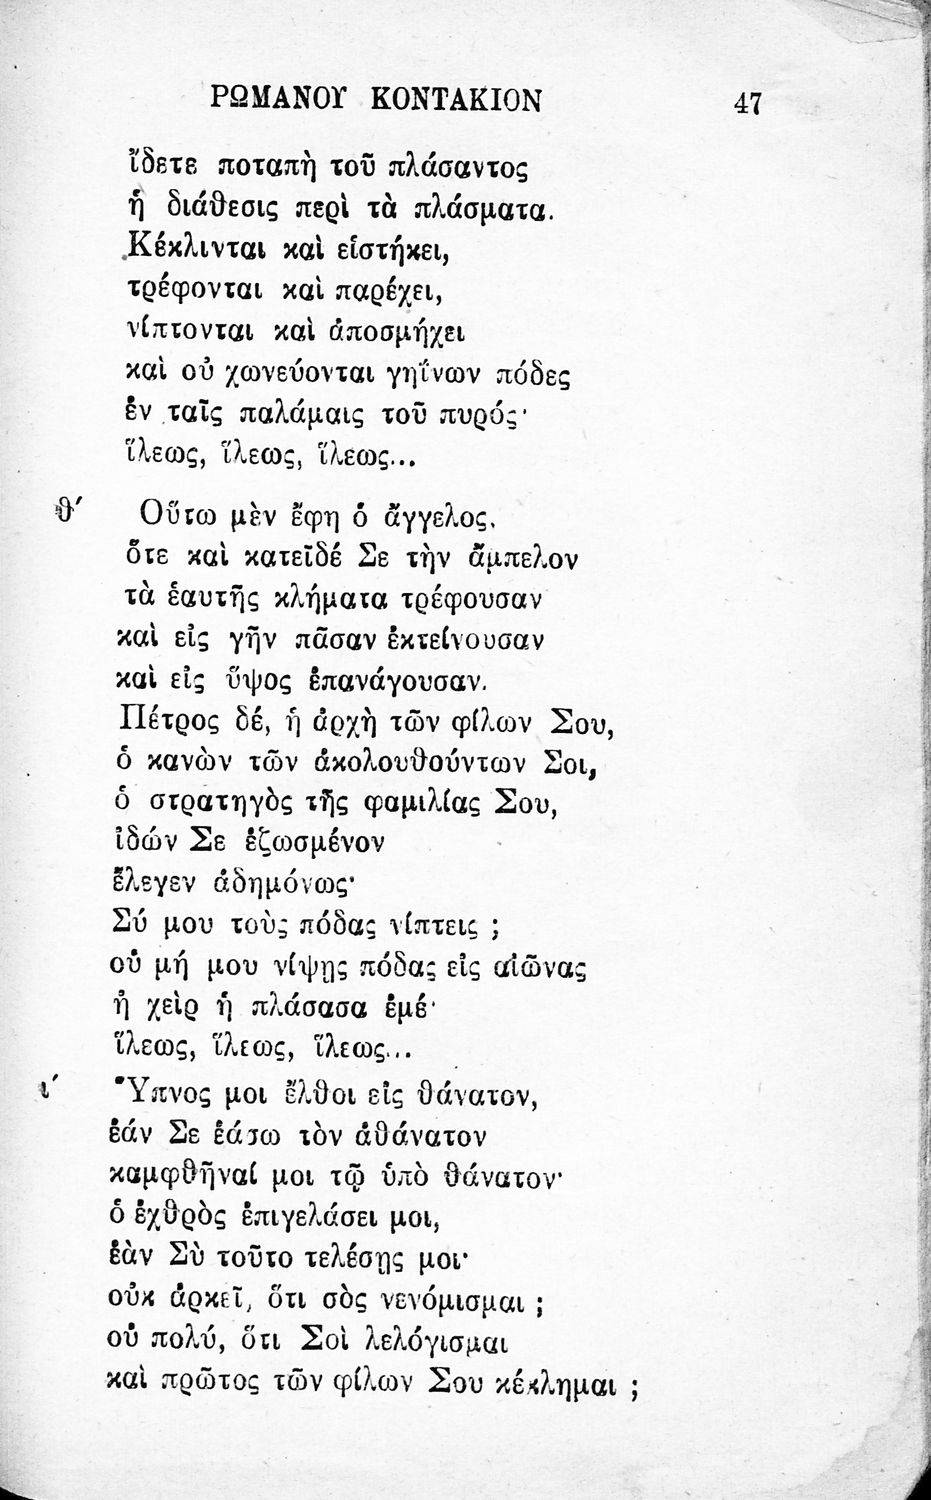 ΡΩΜΑΝΟΥ ΚΟΝΤΑΚΙΟΝ 47
ἴδετε ποταπὴ τοῦ πλάσαντος
ἡ διάθεσις περὶ τὰ πλάσματα.
Κέκλινται καὶ εἱστήκει,
τρέφονται καὶ παρέχει,
νίπτονται καὶ ἀποσμήχει
καὶ οὐ χωνεύονται γηΐνων πόδες
ἐν ταῖς παλάμαις τοῦ πυρός·
ἵλεως, ἵλεως, ἵλεως...
θ′ Οὕτω μὲν ἔφη ὁ ἄγγελος,
ὅτε καὶ κατεῖδέ Σε τὴν ἄμπελον
τὰ ἑαυτῆς κλήματα τρέφουσαν
καὶ εἰς γῆν πᾶσαν ἐκτείνουσαν
καὶ εἰς ὕψος ἐπανάγουσαν.
Πέτρος δέ, ἡ ἀρχὴ τῶν φίλων Σου,
ὁ κανὼν τῶν ἀκολουθούντων Σοι,
ὁ στρατηγὸς τῆς φαμιλίας Σου,
ἰδών Σε ἐζωσμένον
ἔλεγεν ἀδημόνως·
Σύ μου τοὺς πόδας νίπτεις ;
οὐ μή μου νίψῃς πόδας εἰς αἰῶνας
ἡ χεὶρ ἡ πλάσασα ἐμέ·
ἵλεως, ἵλεως, ἵλεως...
ι′ Ὕπνος μοι ἔλθοι εἰς θάνατον,
ἐάν Σε ἐάσω τὸν ἀθάνατον
καμφθῆναί μοι τῷ ὑπὸ θάνατον·
ὁ ἐχθρὸς ἐπιγελάσει μοι,
ἐὰν Σὺ τοῦτο τελέσῃς μοι·
οὐκ ἀρκεῖ, ὅτι σὸς νενόμισμαι ;
οὐ πολύ, ὅτι Σοὶ λελόγισμαι
καὶ πρῶτος τῶν φίλων Σου κέκλημαι ;